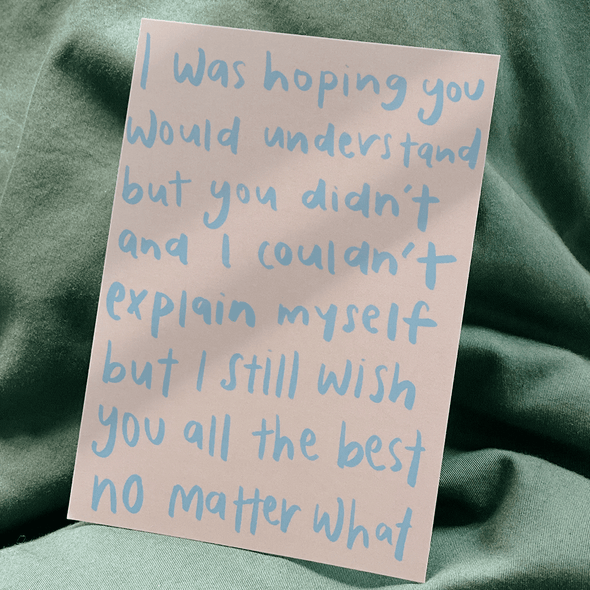 I was hoping you
would understand
but you didn't
and I couldn't
explain myself
but I still wish
you all the best
no matter what